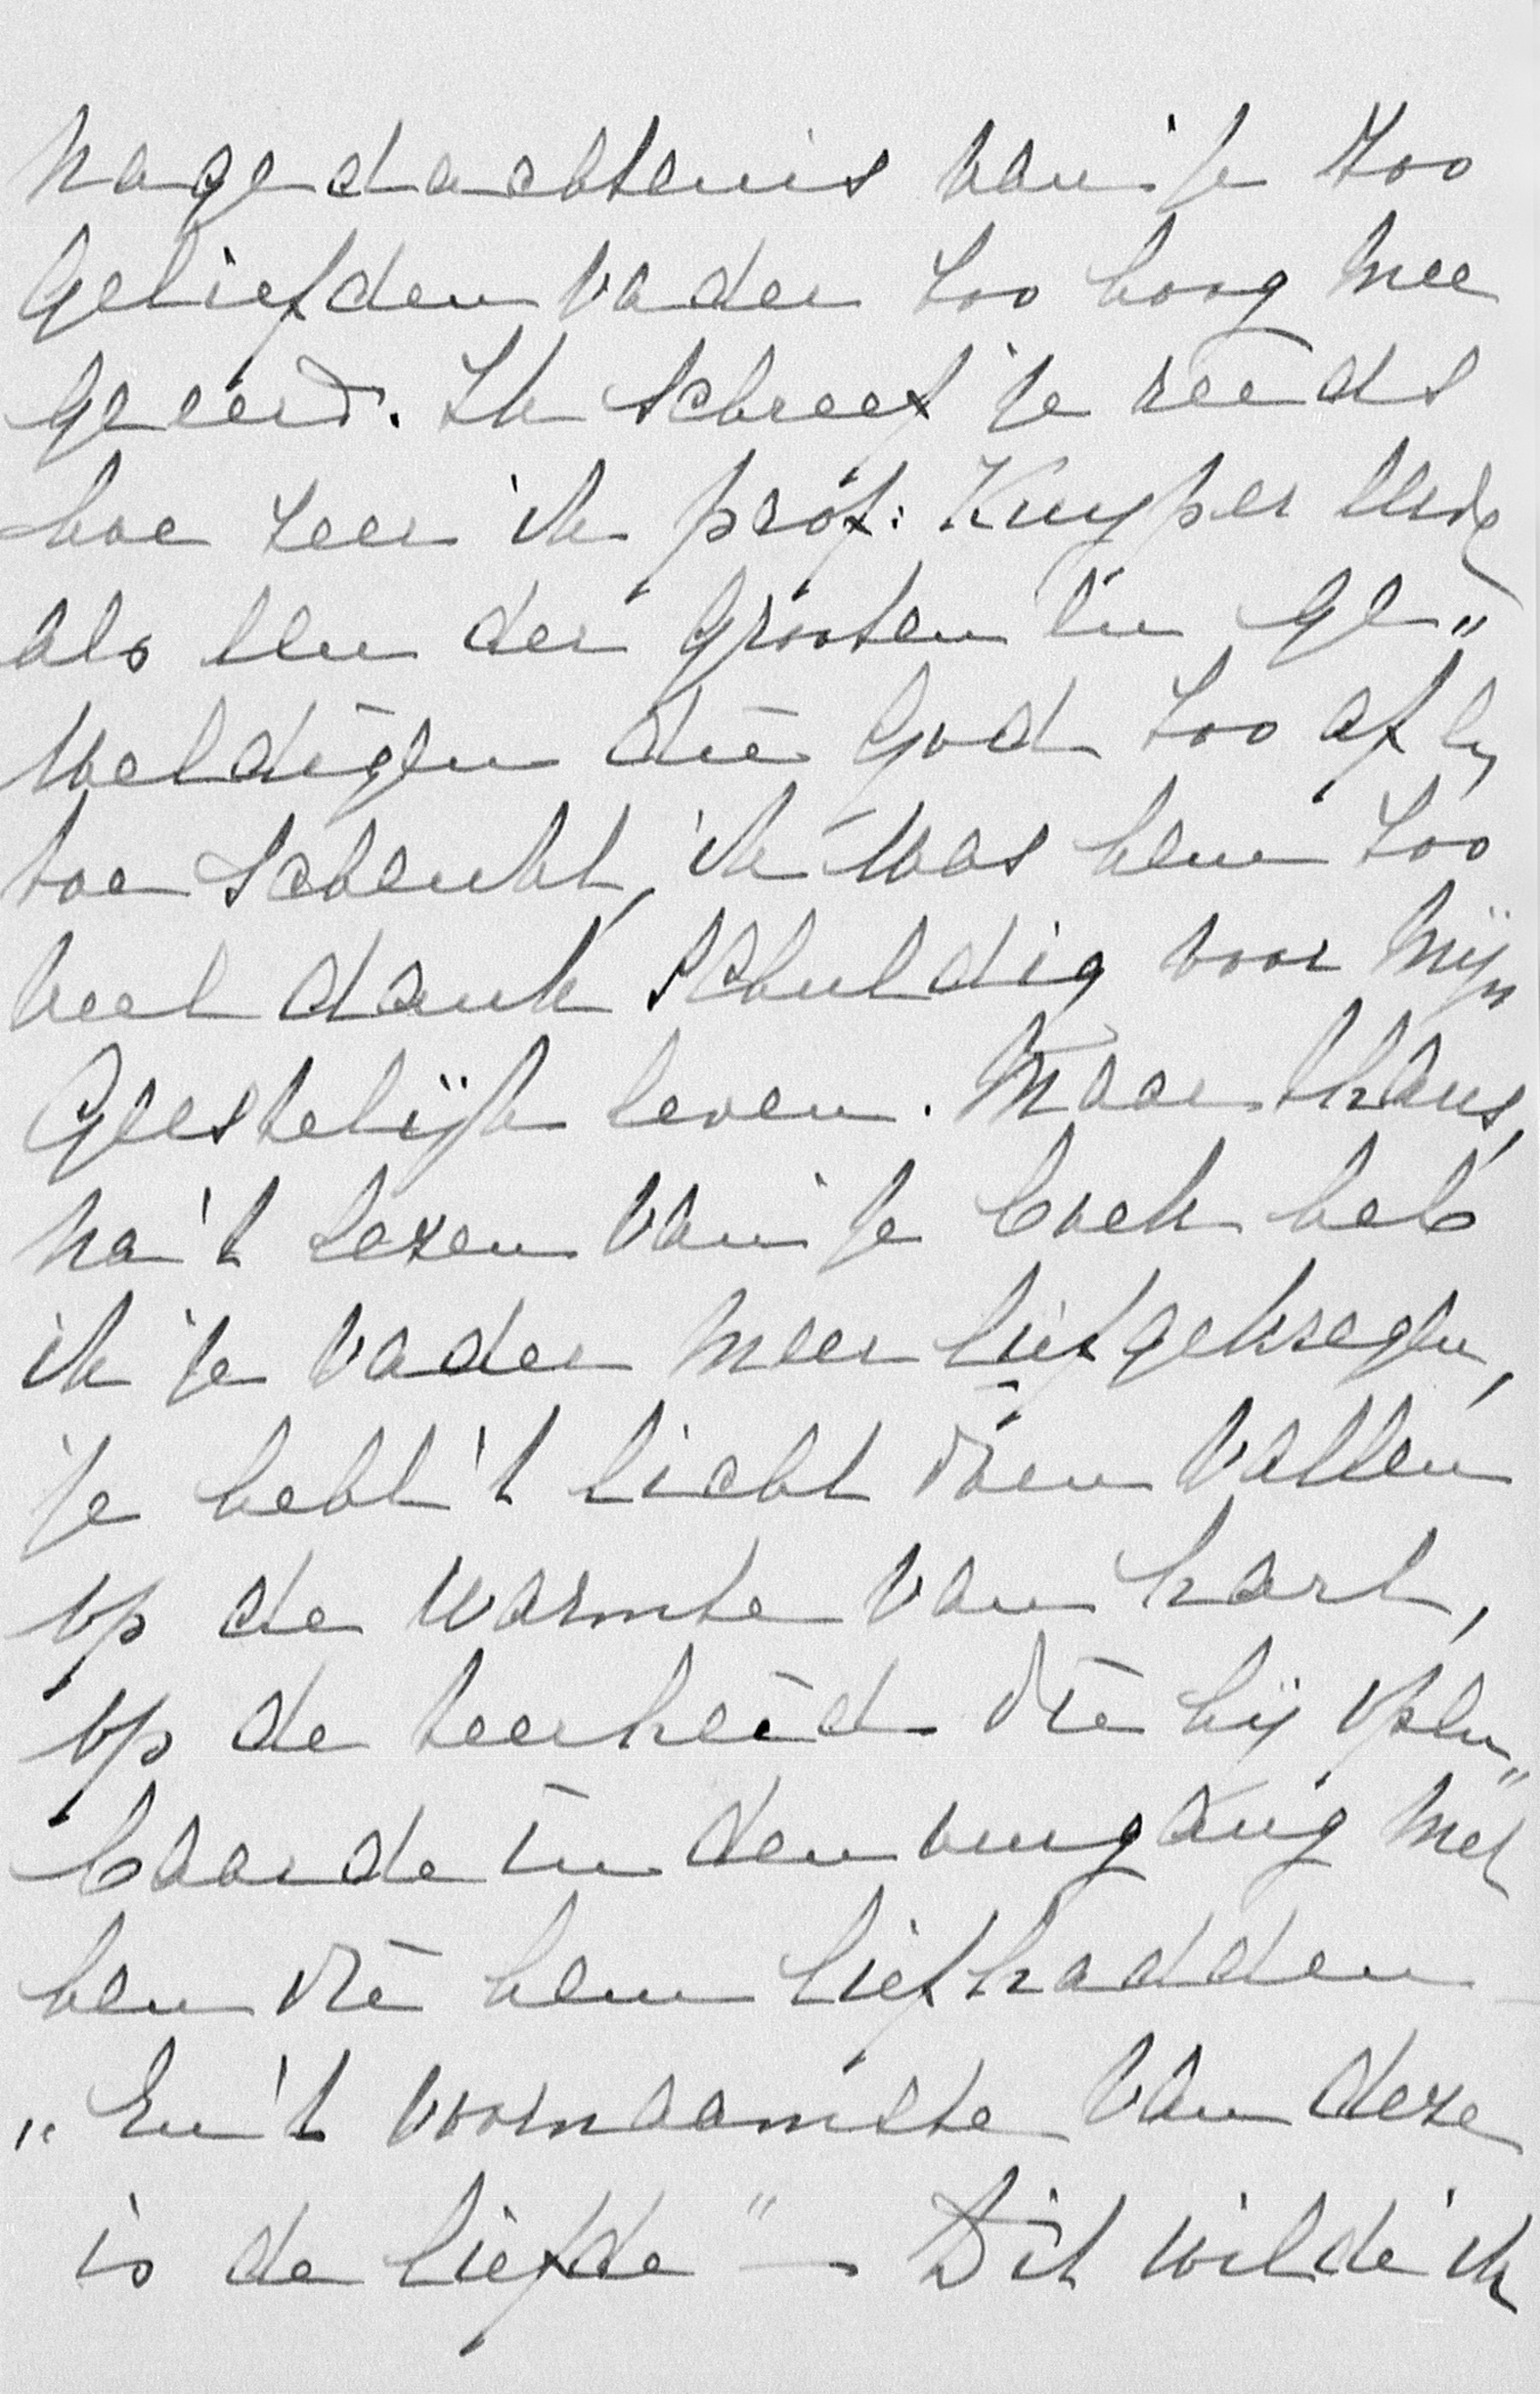 nagedachtenis van je zoo
geliefden vader zoo hoog mee
geeerd. Ik schreef je reeds
hoe zeer ik prof: Kuyper eerde
als een der grooten en ge„
weldigen die God zoo af en
toe schenkt, ik was hem zoo
veel dank schuldig voor mijn
geestelijk leven. Maar thans,
na 't lezen van je boek heb
ik je vader meer liefgekregen,
je hebt 't licht doen vallen
op de warmte van hart,
op de teerheid die hij open„
baarde in den omgang met
hen die hem liefhadden –
„En 't voornaamste van deze
is de liefde" – Dit wilde ik